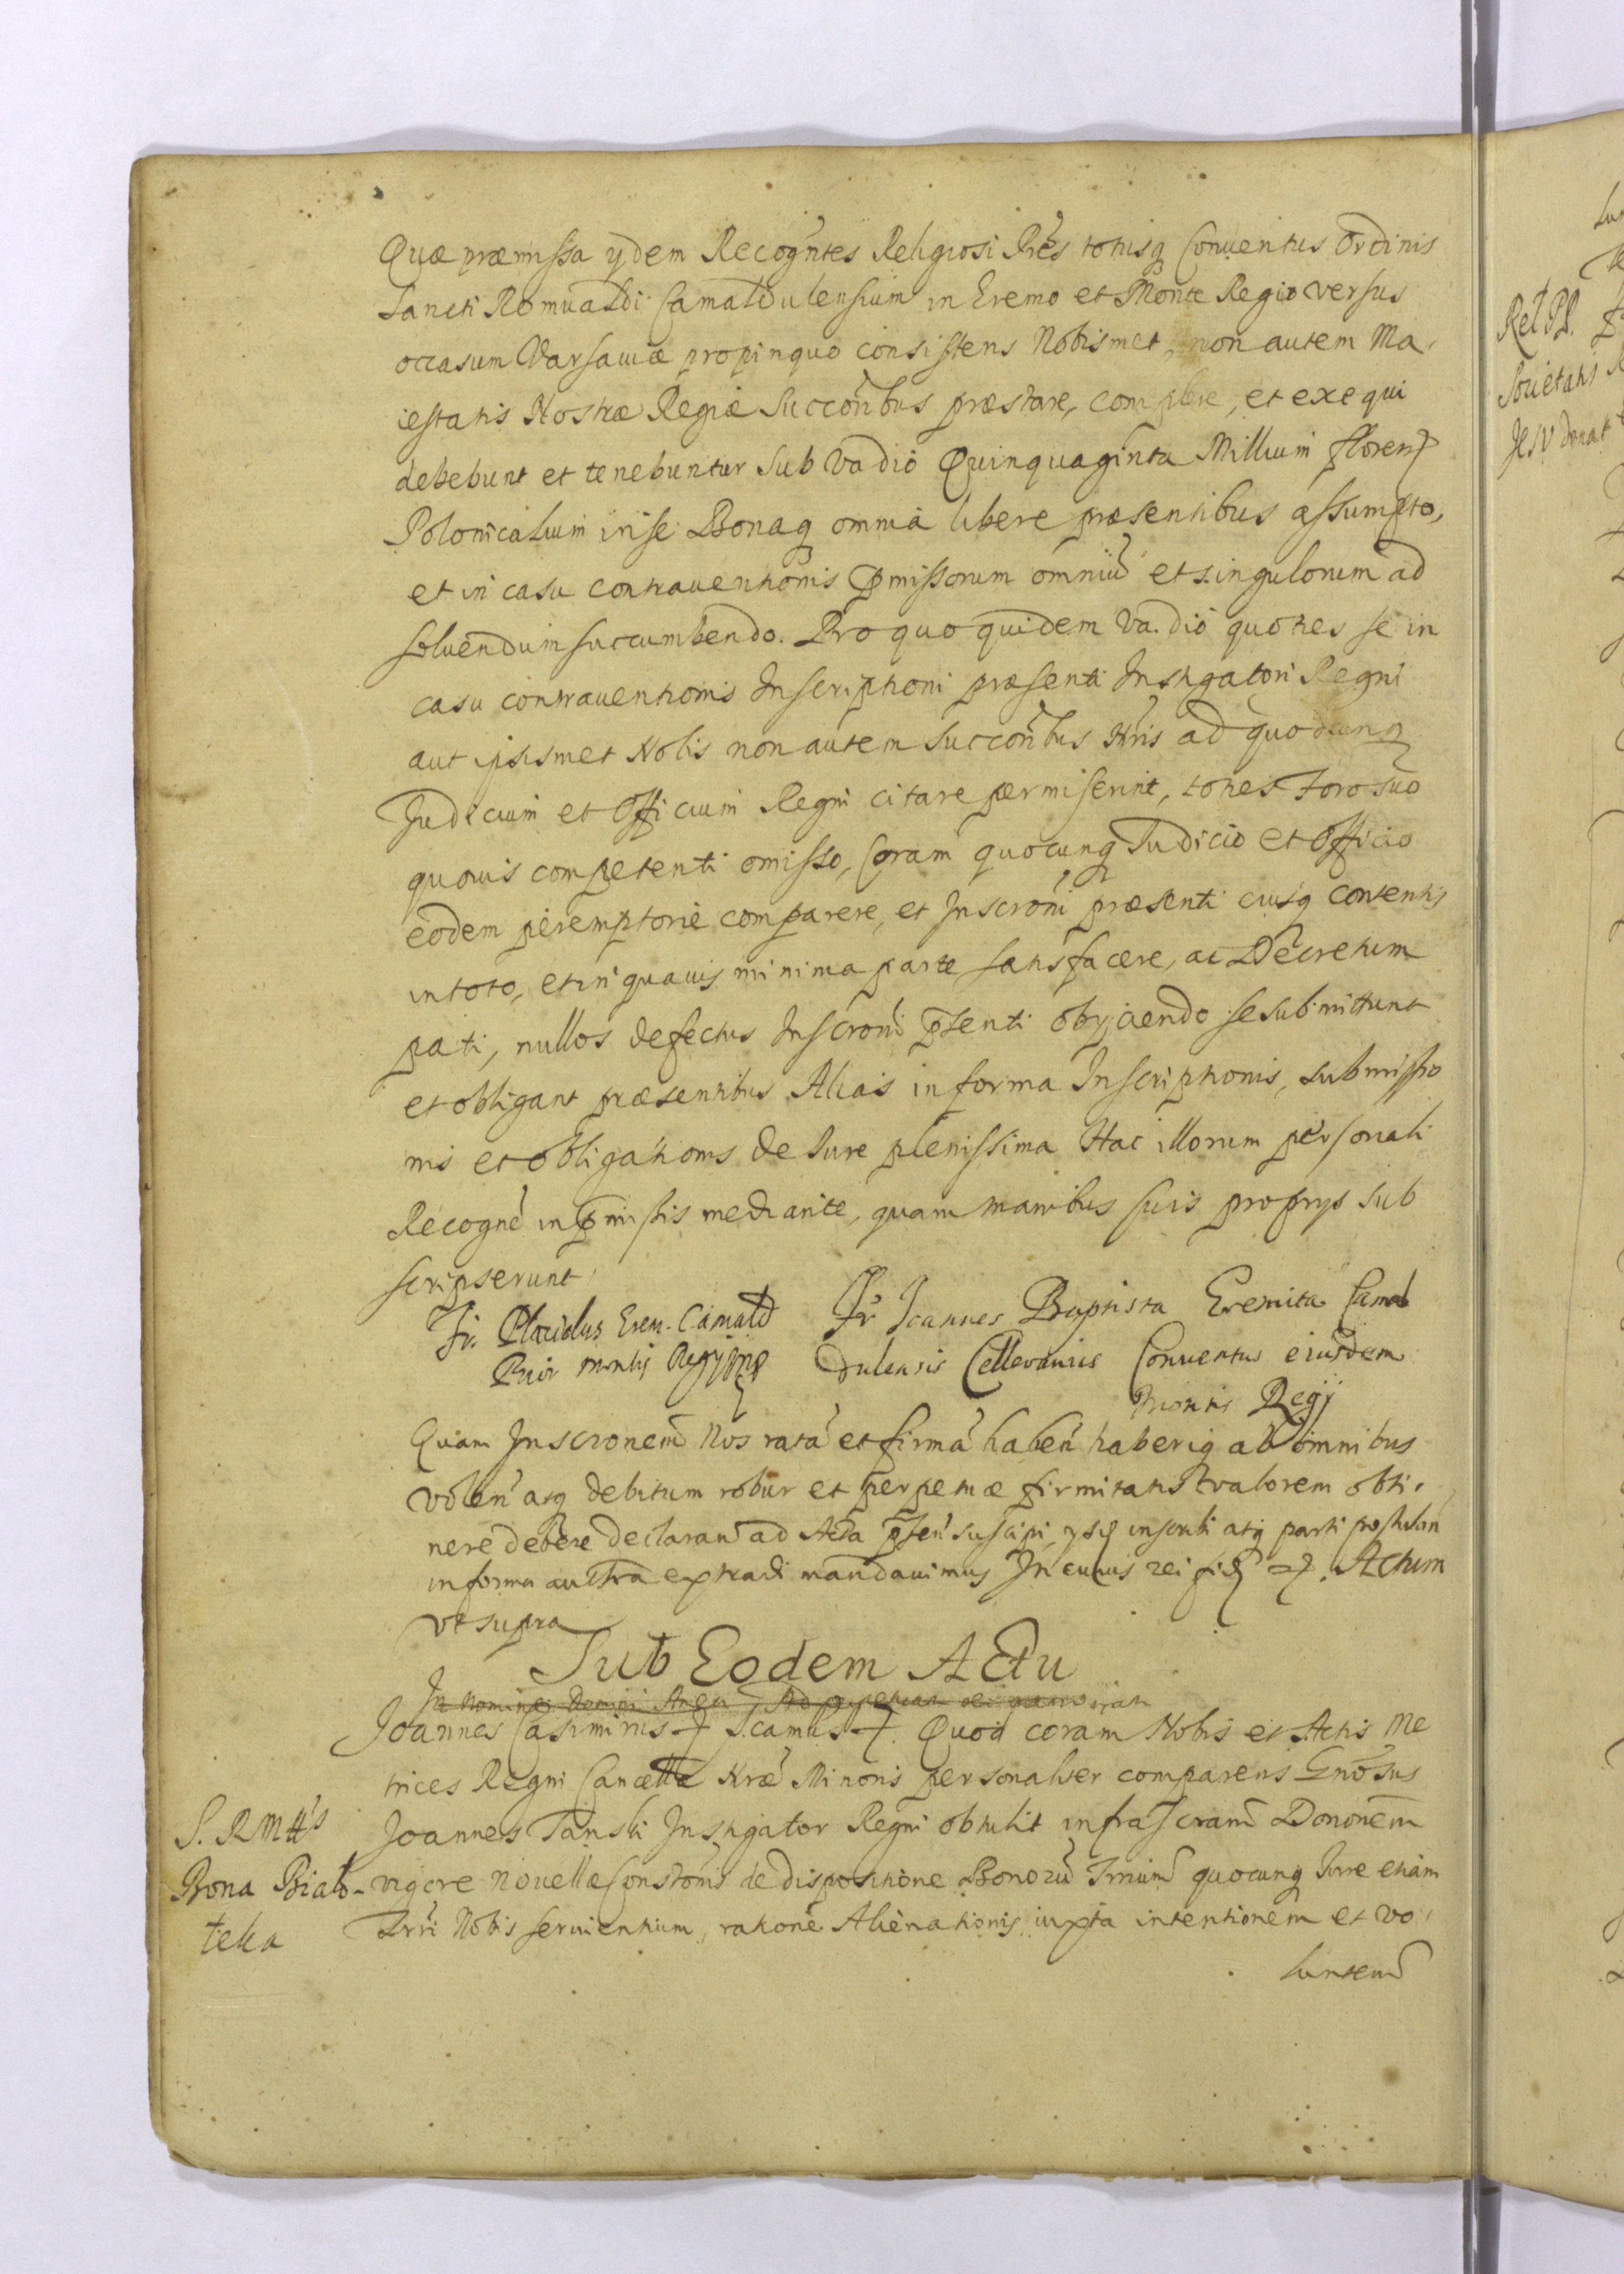 Quæ præmissa ydem Recogn̄tes Religiosi Pr̄es totiusq Conuentus Ordinis
Sancti Romualdi Camaldulensium in Eremo et Monte Regio versus
occasum Varsauiæ propinquo consistens Nobismet, non autem Ma
iestatis Nostræ Regiæ Succōribus præstare, complere, et exequi
debebunt et tenebuntur sub vadio Quinquaginta Millium floren
Polonicalium in se Bonaq omnia libere præsentibus assumpto,
et in casu contrauentionis pmissorum omniū et singulorum ad
soluendum succumbendo. Pro quo quidem vadio quoties se in
casu contrauentionis Inscriptioni præsenti Instigatori Regni
aut ipsismet Nobis non autem Succōribus Nr̄is ad quodcunq
Judicium et Officium Regni citare permiserint, toties Foro suo
quouis competenti omisso, Coram quocunq Judicio et Officio
eodem peremptorie comparere, et Inscrōni præsenti eiusq contentis
in toto, et in quauis minima parte satisfacere, ac Decretum
pati, nullos defectus Inscrōni p̄senti obyciendo se submittunt
et obligant præsentibus Alias in forma Inscriptionis, submissio
nis et obligationis de Jure plenissima Hac illorum personali
Recogn̄e in pmissis mediante, quam manibus suis proprys sub
scripserunt
Fr. Placidus Erem. Camald
Fr Joannes Baptista Eremita Camal
Prior montis Regy mp
dulensis Cellerarius Conuentus eiusdem
Montis Regij
Quam Inscronem̄ Nos ratā et firmā haben̄ haberiq ab omnibus
volen̄ atq debitum robur et perpetuæ firmitatis valorem obti
nere debere declaran̄ ad Acta p̄sen̄ suscipi, ysq inscribi atq parti postulan
in forma aut̄tca extradi mandauimus In cuius rei fid. Actum
vt supra
Sub Eodem Actu
In Nomine Domini Amen, Ad perpetuam rei memoriam
Joannes Casimirus Scamus. Quod coram Nobis et Actis Me
trices Regni Cancellæ Nræ Minoris personaliter comparens Gn̄osus
Joannes Tanski Instigator Regni obtulit infrascrām Dononem̄
vigore Nouellæ Constōnis de dispositione Bonorū Trrium̄ quocunq Jure etiam
Trri Nobis seruientium, ratione Alienationis iuxta intentionem et vo
luntem̄
S. R Mttis
Bona Biało-
teka
Rel PP.
Societatis
Jesu donat